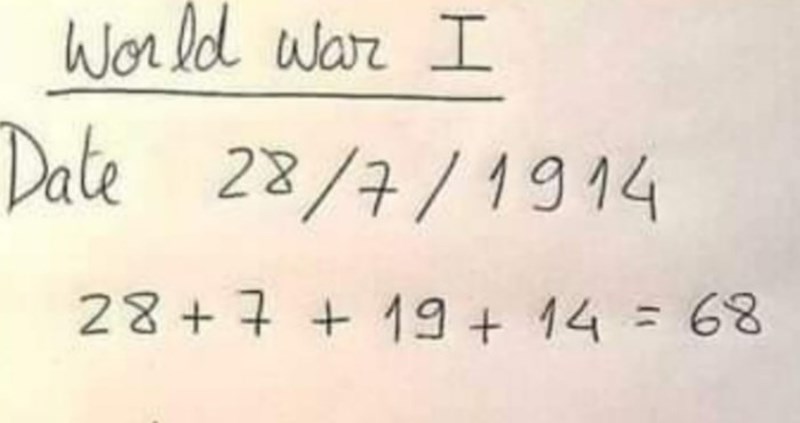 World War I
Date 28/7/1914
28+7 + 19+ 14 = 68